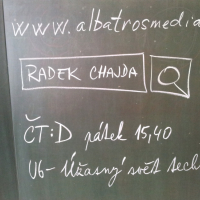 www.albatrosmedia
RADEK CHAJDA
ČT:D pátek 15,40
U6- Úžasný svět tech